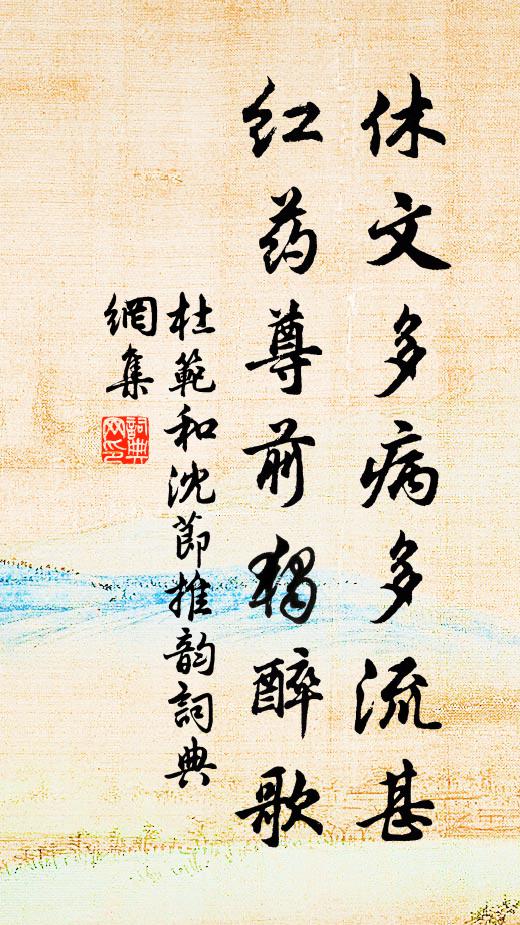 休文多病多流甚
红药尊前獨醉歌
杜範和沈節推韵詞典
網集
詞典网印